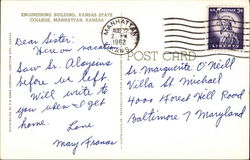 ENGINEERING BUILDING, KANSAS STATE
COLLEGE, MANHATTAN, KANSAS
Dear Sister:
Here on vacation
Saw Sr. Aloysius
before we left.
Will write to
you when I get
home.
Love
Mary
MANHATTAN
1962
KANS.
POST CARD
LIBERTY
Sr Marguerite O'Neill
Villa St. Michael
4000 Forest Hill Road
Baltimore 7 Maryland